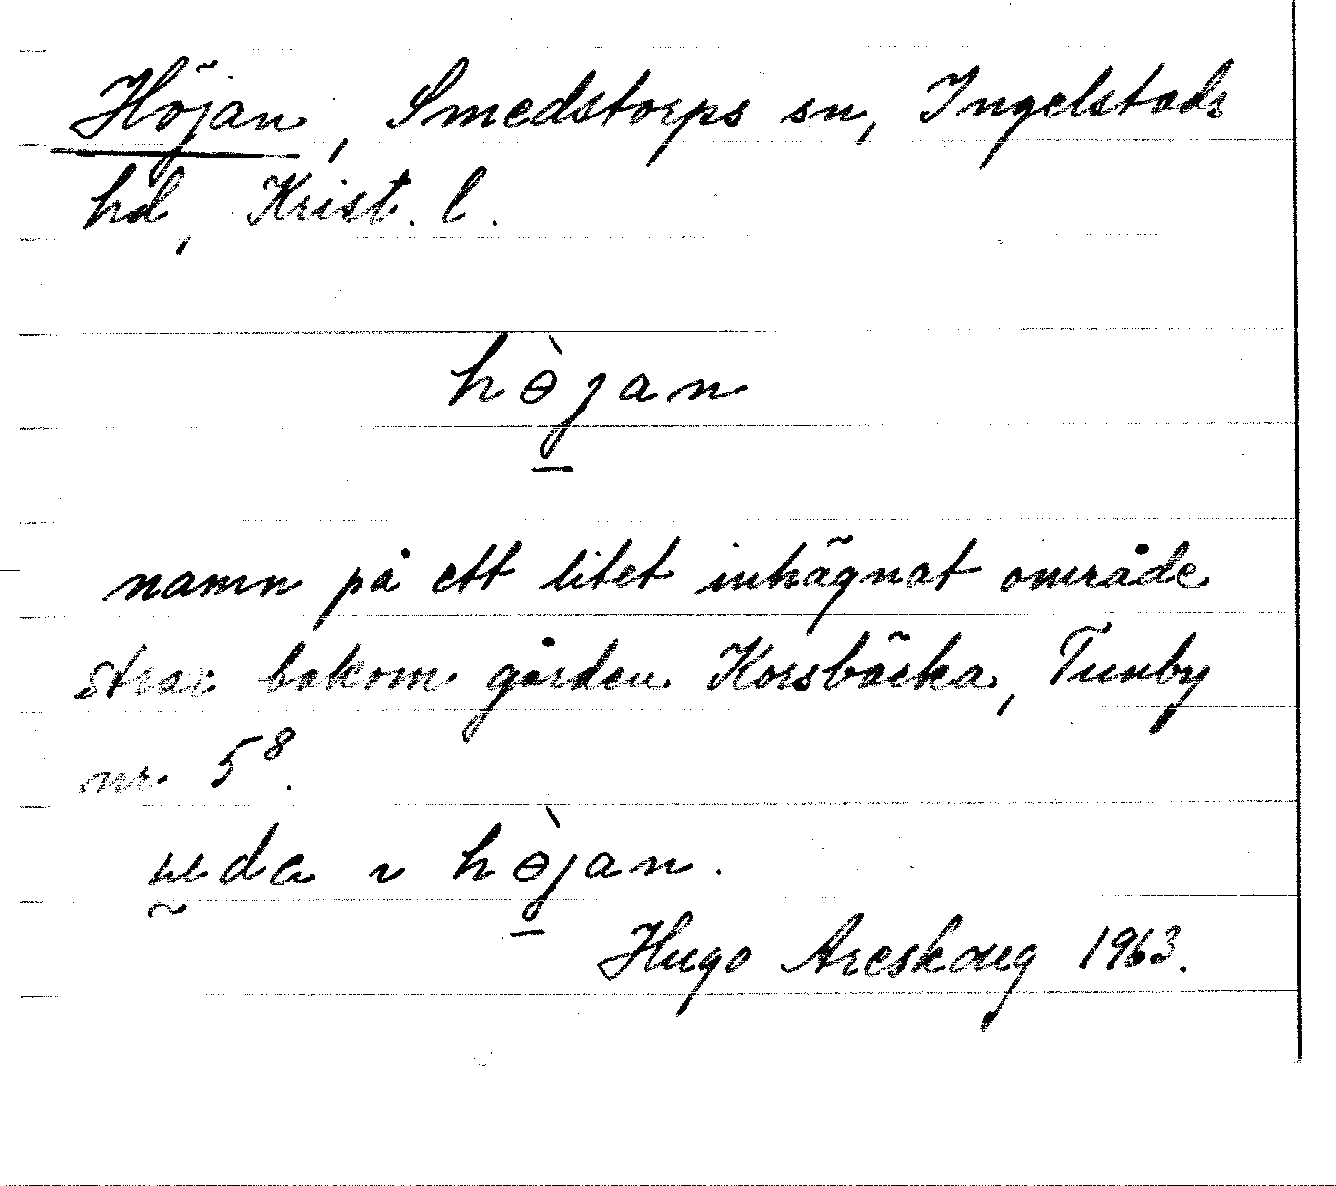 Höjan, Smedstorps sn, Ingelstads
hd, Krist. l.
hɵ̀jan
namn på ett litet inhägnat område
strax bakom gården Korsbäcka, Tunby
nr. 5⁸.
hɵ̀jan.
Hugo Areskoug 1963.